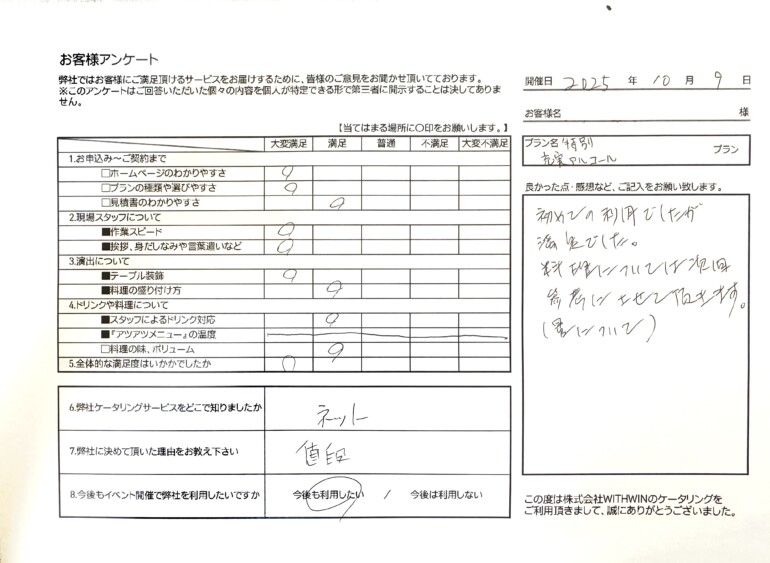 お客様アンケート
弊社ではお客様にご満足頂けるサービスをお届けするために、皆様のご意見をお聞かせ頂いております。
※このアンケートはご回答いただいた個々の内容を個人が特定できる形で第三者に開示することは決してありま
せん。
開催日 2025 年 10 月 9 日
お客様名 様
【当てはまる場所に〇印をお願いします。】
大変満足 満足 普通 不満足 大変不満足
プラン名 特別
充実アルコール プラン
1.お申込み～ご契約まで
□ホームページのわかりやすさ
□プランの種類や選びやすさ
□見積書のわかりやすさ
2.現場スタッフについて
■作業スピード
■挨拶、身だしなみや言葉遣いなど
3.演出について
■テーブル装飾
■料理の盛り付け方
4.ドリンクや料理について
■スタッフによるドリンク対応
■『アツアツメニュー』の温度
□料理の味、ボリューム
5.全体的な満足度はいかがでしたか
良かった点・感想など、ご記入をお願い致します。
初めての利用でしたが
満足でした。
料理については次回
参考にさせて頂きます。
(量について)
6.弊社ケータリングサービスをどこで知りましたか ネット
7.弊社に決めて頂いた理由をお教え下さい 値段
8.今後もイベント開催で弊社を利用したいですか 今後も利用したい / 今後は利用しない
この度は株式会社WITHWINのケータリングを
ご利用頂きまして、誠にありがとうございました。